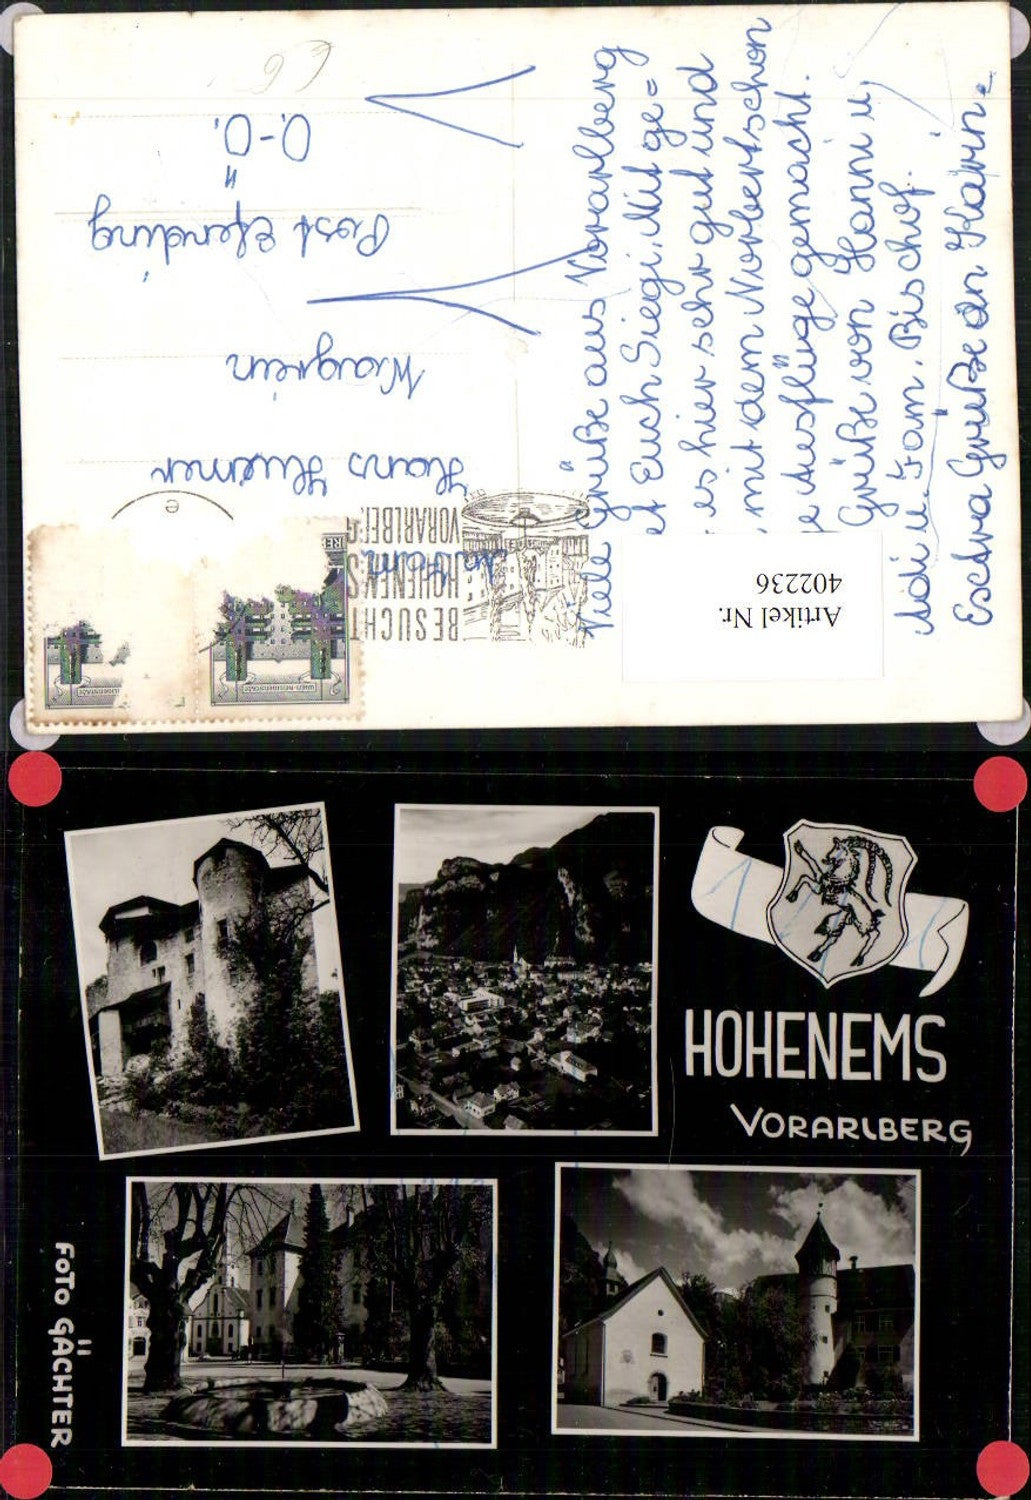 Viele Grüße aus Vorarlberg
Euch Siegi. Mit ge=
es hier sehr gut und
mit dem Norbert schon
Ausflüge gemacht.
Grüße von Hanni u,
Adi u. Fam. Bischof.
Extra Grüße an Karin.
Artikel Nr.
402236
BESUCHT
HOHENEMS
VORARLBERG
Hans
Wagrein
Post Eferding
O.-Ö.
WIEN-HEILIGENSTADT
HOHENEMS
VORARLBERG
FOTO GÄCHTER